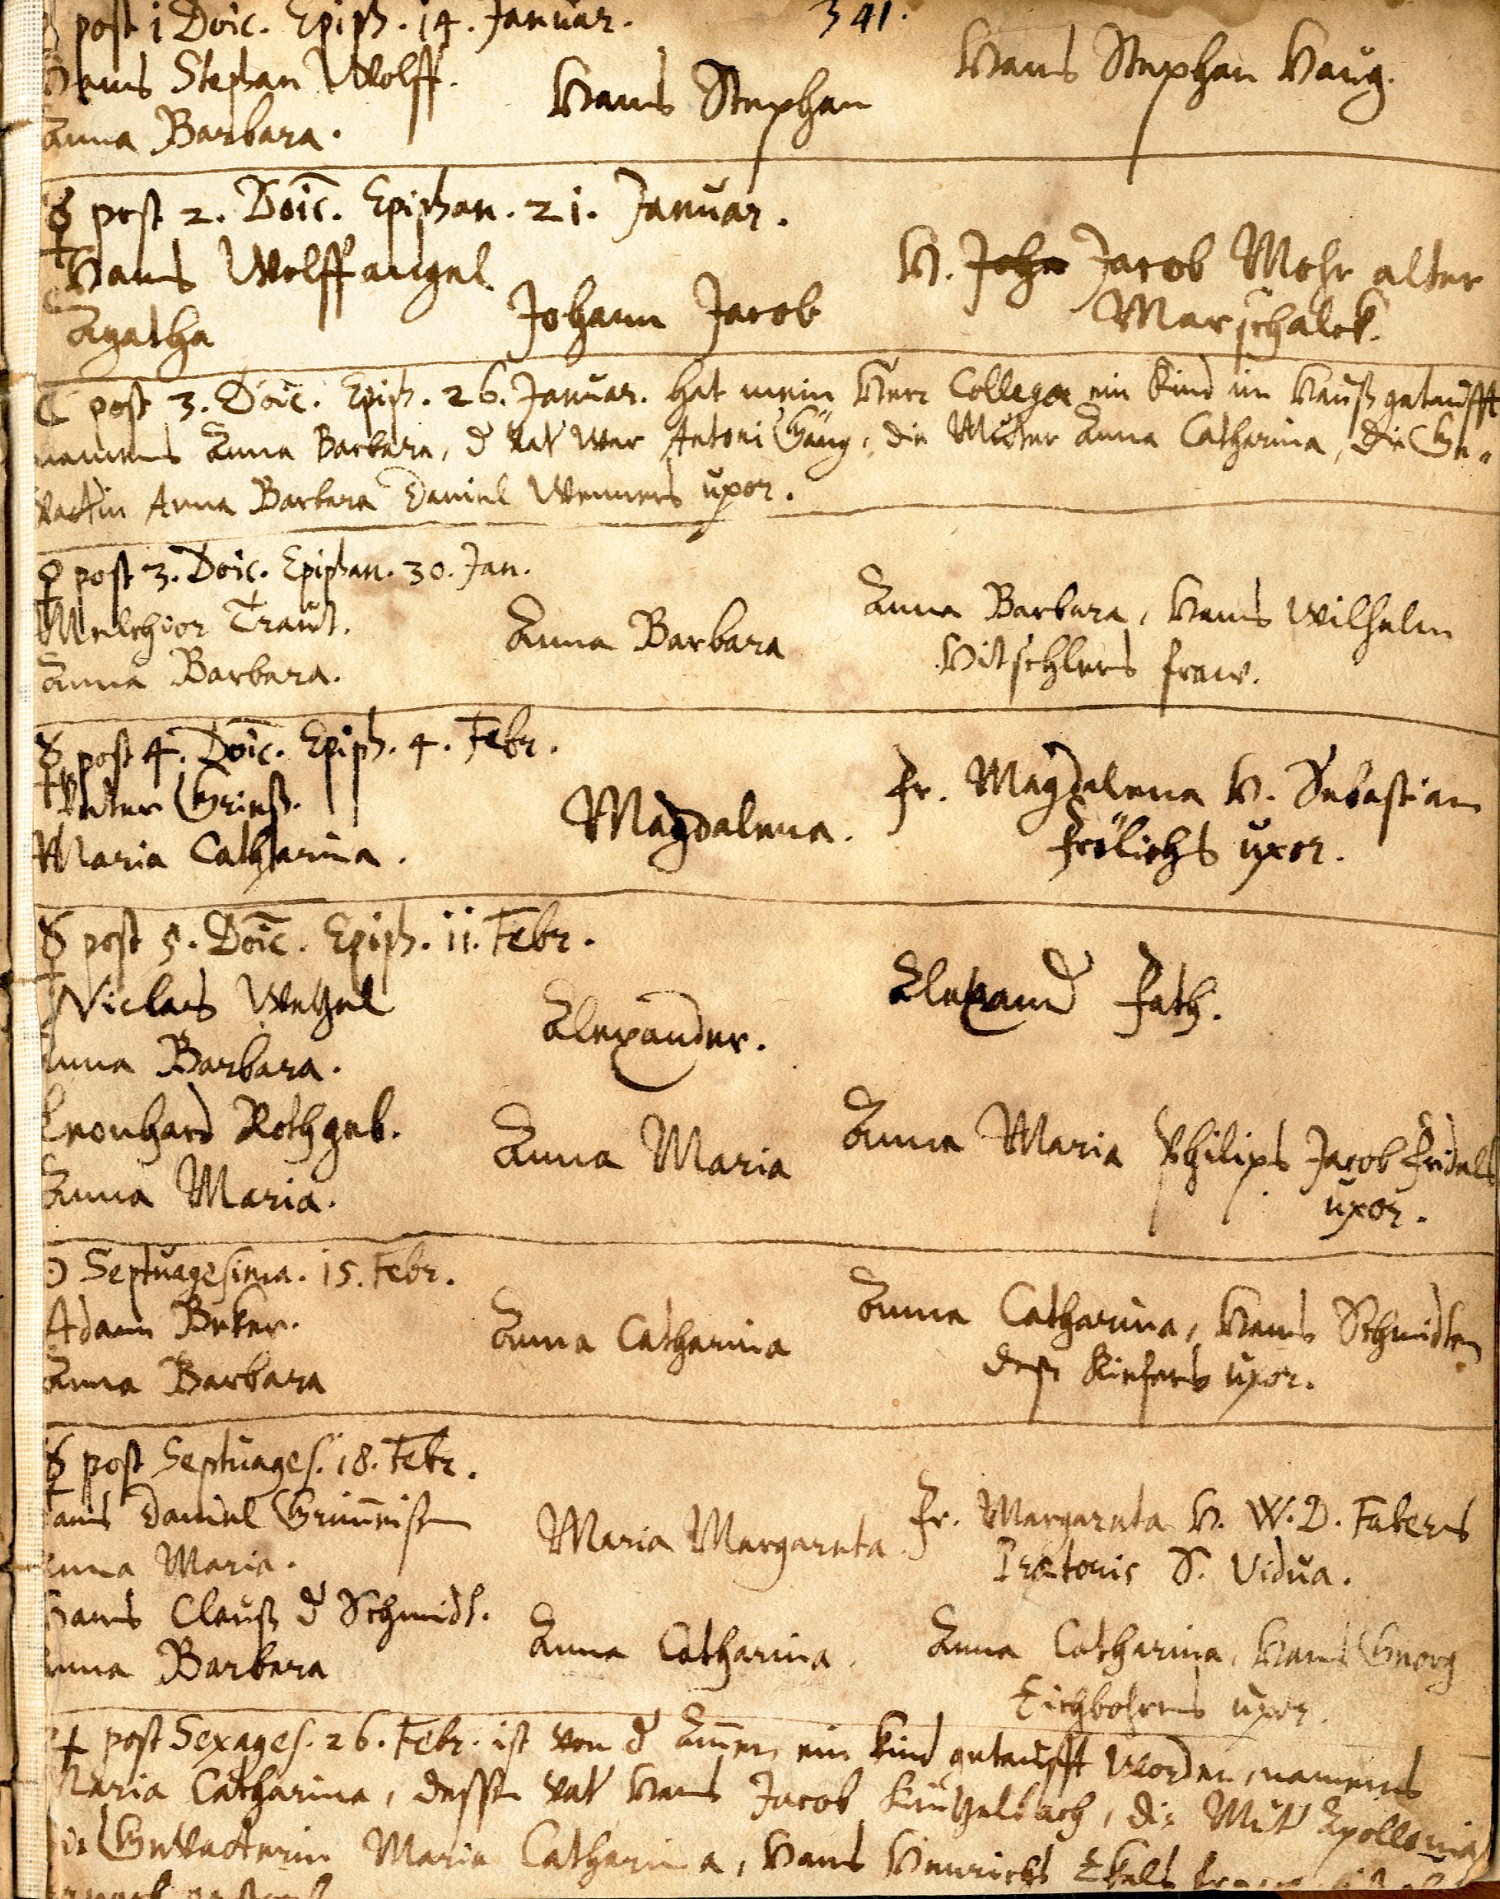 ☿ post 1 Doīc. Epiph. 14. Januar.
341.
Hans Stephan Wolff.
Hans Stephan
Hans Stephan Haug.
Anna Barbara.
☿ post 2. Doīc. Epiphan. 21. Januar.
Hans Wolffangel
Johann Jacob
H. Joha Jacob Mohr alter
Agatha
Marschalck.
☾ post 3. Doīc. Epiph. 26. Januar. hat mein Herr Collega ein Kind im Hauß getaufft
namens Anna Barbara, d Vat war Antoni Gäug, die Mutter Anna Catharina, die Ge„
vattin Anna Barbara Daniel Wenners uxor.
♀ post 3. Doīc. Epiphan. 30. Jan.
Melchior Traut.
Anna Barbara
Anna Barbara, Hans Wilhelm
Anna Barbara.
Hitschlers fraw.
☿ post 4. Doīc. Epiph. 4. Febr.
Peter Grieß.
Magdalena.
Fr. Magdalena H. Sebastian
Maria Catharina.
Frölichs uxor.
☿ post 5. Doīc. Epiph. 11. Febr.
Niclas Wetzel
Alexander.
Alexand Fath.
Anna Barbara.
Leonhard Rothgeb.
Anna Maria
Anna Maria Philips Jacob Fridels
Anna Maria.
uxor.
☉ Septuagesima. 15. Febr.
Adam Beker.
Anna Catharina
Anna Catharina, Hans Schmidten
Anna Barbara
deß Kiefers uxor.
☿ post Septuages. 18. Febr.
Hans Daniel Grim̄eisen
Maria Margareta
Fr. Margareta H. W. D. Fabers
Anna Maria.
Prætoris S. Vidua.
Hans Clauß d Schmidt.
Anna Catharina.
Anna Catharina, Hans Georg
Anna Barbara
Eichbohrns uxor.
♃ post Sexages. 26. Febr. ist von d Am̄en ein Kind getaufft worden, namens
Maria Catharina, dessen Vat Hans Jacob Küntzelbach, die Mutt Apollonia
die Gevatterin Maria Catharina, Hans Henrichs Ekels